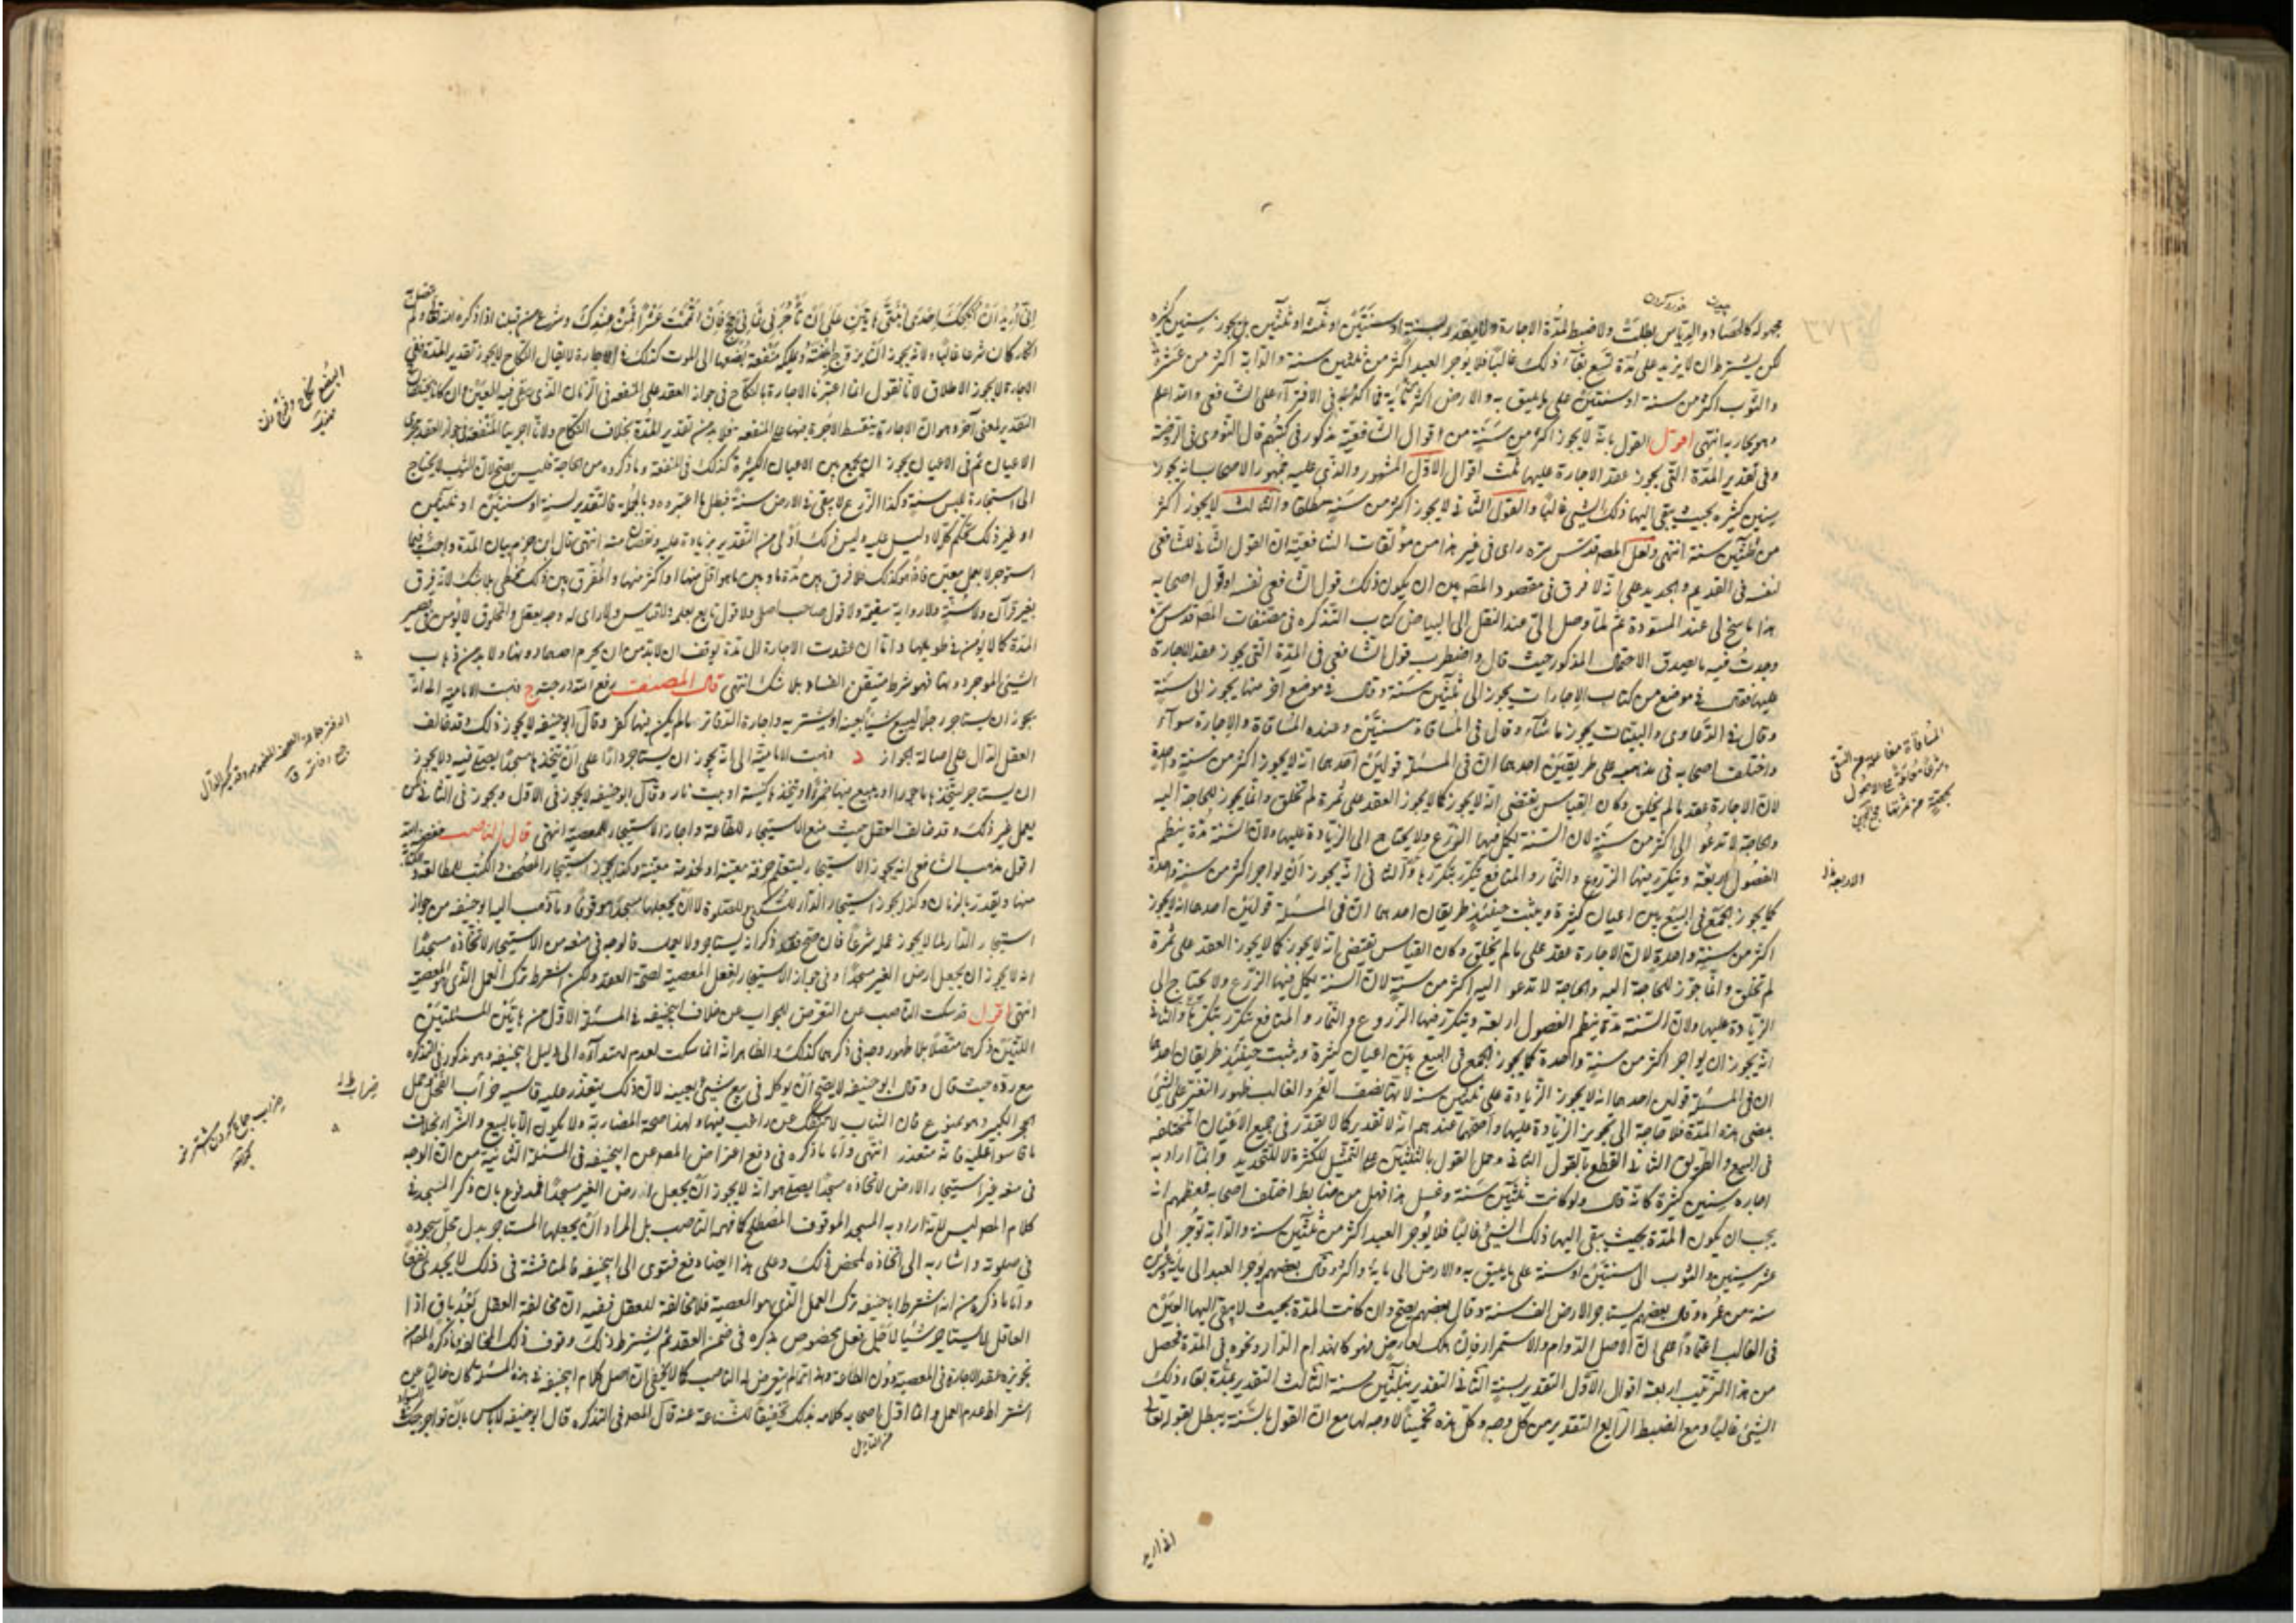 مجهولة كالحصاد والدياس بطلت ولا ضبط لمدة الاجارة ولا يتقدر بسنة او سنتين او ثلثة او ثلثين بل يجوز سنين كثيرة
لكن يشترط ان لا يزيد على مدة تسع بقاء ذلك غالبا فلا يوجر العبد اكثر من ثلثين سنة والدابة اكثر من عشرة
والثوب اكثر من سنة او سنتين على ما يليق به والارض اكثر في الافتراء على الشافعي والله اعلم
انتهى اقول القول بانه لا يجوز اكثر من سنة من اقوال الشافعية مذكور في كتبهم قال النووي في الروضة
وفي تقدير المدة التي يجوز عقد الاجارة عليها ثلث اقوال الاول المشهور والذي عليه جمهور الاصحاب انه يجوز
سنين كثيرة بحيث يبقى اليها ذلك الشيء غالبا والقول الثاني لا يجوز اكثر من سنة مطلقا والثالث لا يجوز اكثر
من ثلثين سنة انتهى ولعل المصنف قدس سره راى في غير هذا من مولفات الشافعية ان القول الثاني للشافعي
نفسه في القديم والجديد على انه لا فرق في مقصود المص بين ان يكون ذلك قول الشافعي نفسه او قول اصحابه
هذا ما سنح لي عند المسودة ثم لما وصل الي عند النقل الى البياض كتاب التذكرة من مصنفات المص قدس سره
وجدت فيه ما يصدق الاحتمال المذكور حيث قال واضطرب قول الشافعي في المدة التي يجوز عقد الاجارة
عليها فقال في موضع من كتاب الاجارات يجوز الى ثلثين سنة وقال في موضع اخر منها يجوز الى سنة
وقال في الدعاوى والبينات يجوز ما شاء وقال في المساقاة سنتين وعنده المساقاة والاجارة سواء
واختلف اصحابه في مذهبه على طريقين احدهما ان في المسئلة قولين احدهما انه لا يجوز اكثر من سنة واحدة
لان الاجارة عقد على ما لم يخلق وكان القياس يقتضي انه لا يجوز كما لا يجوز العقد على ثمرة لم تخلق وانما يجوز للحاجة اليه
والحاجة لا تدعو الى اكثر من سنة لان السنة يكمل فيها الزرع ولا يحتاج الى الزيادة عليها ولان السنة مدة ينظم
الفصول الاربعة ويتكرر فيها الزروع والثمار والمنافع تتكرر بتكررها والثاني انه يجوز ان يواجر اكثر من سنة واحدة
كما يجوز الجمع في البيع بين اعيان كثيرة ويثبت حينئذ طريقان احدهما ان في المسئلة قولين احدهما انه لا يجوز
اكثر من سنة واحدة لان الاجارة عقد على ما لم يخلق وكان القياس يقتضي انه لا يجوز كما لا يجوز العقد على ثمرة
لم تخلق وانما جوز للحاجة اليه والحاجة لا تدعو اليه اكثر من سنة لان السنة يكمل فيها الزرع ولا يحتاج الى
الزيادة عليها ولان السنة مدة ينظم الفصول اربعة ويتكرر فيها الزروع والثمار والمنافع تتكرر بتكررها والثاني
انه يجوز ان يواجر اكثر من سنة واحدة كما يجوز الجمع في البيع بين اعيان كثيرة ويثبت حينئذ طريقان احدهما
ان في المسئلة قولين احدهما انه لا يجوز الزيادة على ثلثين سنة لانها نصف العمر والغالب ظهور التغير على الشيء
بمضي هذه المدة فلا حاجة الى تجويز الزيادة عليها واصحهما عندهم انه لا تقدير كما لا يقدر في جميع الاعيان المختلفة
في البيع والطريق الثاني القطع بالقول الثاني وحمل القول بالثلثين على التمثيل للكثرة لا للتحديد وانما اراد به
اجارة سنين كثيرة كانه قال ولو كانت ثلثين سنة اختلف اصحابه فمعظمهم انه
يجب ان يكون المدة بحيث يبقى اليها ذلك الشيء غالبا فلا يوجر العبد اكثر من ثلثين سنة والدابة توجر الى
عشر سنين والثوب الى سنتين او سنة على ما يليق به والارض الى ماية واكثر وقال بعضهم يوجر العبد الى ماية وعشرين
سنة من عمره وقال بعضهم يستاجر الارض الف سنة وقال بعضهم يصح وان كانت المدة بحيث لا يبقى اليها العين
في الغالب اعتمادا على ان الاصل الدوام والاستمرار فان هلك لعارض فهو كانهدام الدار ونحوه في المدة فحصل
من هذا الترتيب اربعة اقوال الاول التقدير بسنة الثاني التقدير بثلثين سنة الثالث التقدير بمدة بقاء ذلك
الشيء غالبا ومع الضبط الرابع التقدير من كل وجه وكل هذه تخمينات لا وجه لها مع ان القول بالسنة يبطل بقوله تعالى
الاربعة
اني اريد ان انكحك احدى ابنتي هاتين على ان تأجرني ثماني حجج فان اتممت عشرا فمن عندك وشرع من قبلنا اذا ذكره الله تعالى ولم
انكار كان شرعا غالبا ولانه يجوز ان يزوج ابنته ويملكه منفعة بضعها الى الموت كذلك في الاجارة لا يقال النكاح لا يجوز تقدير المدة ففي
الاجارة لا يجوز الاطلاق لانا نقول انما اعتبرنا الاجارة بالنكاح في جواز العقد على المنفعة في الزمان الذي يبقى فيه المعين وان كانا يختلفان
التقدير لمعنى اخر وهو ان الاجارة يتقسط الاجرة فيها على المنفعة فلا بد من تقدير المدة بخلاف النكاح ولانا اجرينا المنفعة في جواز العقد مجرى
الاعيان ثم في الاعيان يجوز ان يجمع بين الاعيان الكثيرة كذلك في المنفعة وما ذكروه من الحاجة فليس بصحيح لان الثوب لا يحتاج
الى استيجاره للبس سنة وكذا الزرع لا يبقى في الارض سنة فبطل ما اعتبروه وبالجملة فالتقدير لسنة او سنتين او ثلثين
او غير ذلك تحكم لا دليل عليه وليس ذلك اولى من التقدير بزيادة عليه ونقصان منه انتهى وقال ابن حزم بيان المدة واجب فيما
استوجر لا بعمل معين فاذ هو كذلك فلا فرق بين مدة ما وبين ما هو اقل منها او اكثر منها والمفرق بين ذلك مخطي بلا شك لانه فرق
بغير قرآن ولا سنة ولا رواية سقيمة ولا قول صاحب اصلا ولا قول تابع يعلم ولا قياس ولا راى له وجه يعقل والمخلوق لا يؤمن في قصير
المدة كما لا يؤمن في طويلها واما ان عقدت الاجارة الى مدة يوقن ان لا بد من ان يخرم احدهما دونها ولا بد من ذهاب
الشيء المواجر دونها فهو شرط متيقن الفساد بلا شك انتهى قال المصنف رفع الله درجته ج ذهبت الامامية الى انه
يجوز ان يستاجر رجلا ليبيع شيئا بعينه او يشتريه واجارة الدفاتر ما لم يكن فيها كفر وقال ابو حنيفة لا يجوز ذلك وقد خالف
العقل الدال على اصالة الجواز د ذهبت الامامية الى انه يجوز ان يستاجر دارا على ان يتخذها مسجدا يصلي فيه ولا يجوز
ان يستاجر ليتخذها ماخورا او يبيع فيها خمرا او يتخذها كنيسة او بيت نار وقال ابو حنيفة لا يجوز في الاول ويجوز في الثاني لكن
يعمل غير ذلك وقد خالف العقل حيث منع الاستيجار للطاعة واجاز الاستيجار للمعصية انتهى قال الناصب خفضه الله
اقول مذهب الشافعي انه يجوز الاستيجار ليتعلم حرفة معينة او لخدمة معينة وكذا يجوز استيجار المصحف والكتب للمطالعة
منها ويقدر بالزمان وكذا يجوز استيجار الدار للسكنى وللصلوة لا ان يجعلها مسجدا موقوفا وما ذهب اليه ابو حنيفة من جواز
استيجار الدار لما لا يجوز عمله شرعا فان صح فقد ذكر انه يستاجر ولا يعمل فالوجه في منعه من الاستيجار لاتخاذه مسجدا
انه لا يجوز ان يجعل ارض الغير مسجدا وفي جواز الاستيجار لفعل المعصية لصحة العقد ولكن اشترط ترك العمل الذي هو المعصية
انتهى اقول قد سكت الناصب عن التعرض للجواب عن خلاف ابيحنيفة في المسئلة الاولى من هاتين المسئلتين
اللتين ذكرهما متصلا بلا ظهور وجه في ذكرهما كذلك والظاهر انه انما سكت لعدم اهتدائه الى دليل ابيحنيفة وهو مذكور في التذكرة
مع رده حيث قال وقال ابو حنيفة لا يصح ان يوكل في بيع شيء بعينه لان ذلك يتعذر عليه قاسه ضراب الفحل وحمل
الحجر الكبير وهو ممنوع فان الثياب لا تنفك عن راغب فيها ولهذا صحت المضاربة ولا يكون الا بالبيع والشراء بخلاف
ما قاسوا عليه فانه متعذر انتهى واما ما ذكره في دفع اعتراض المص عن ابيحنيفة في المسئلة الثانية من ان الوجه
في منعه غير استيجار الارض لاتخاذه مسجدا يصلي هو انه لا يجوز ان يجعل ارض الغير مسجدا فمدفوع بان ذكر المسجد في
كلام المص ليس لانه اراد به المسجد الموقوف المصطلح كما فهمه الناصب بل المراد ان يجعلها المستاجر بدل محل سجوده
في صلوته واشار به الى اتخاذه لمحض ذلك وعلى هذا ايضا وقع فتوى ابيحنيفة فالمناقشة في ذلك لا يجدي نفعا
واما ما ذكره من انه اشترط ابا حنيفة ترك العمل الذي هو المعصية فلا مخالفة للعقل ففيه ان مخالفة العقل بعد باق اذا
العاقل لا يستاجر شيئا لاجل فعل مخصوص يذكره في ضمن العقد ثم يشترط ذلك وفوق ذلك المخالفة ما ذكره المص من
تجويزه عقد الاجارة في المعصية دون الطاعة وهذا مما لم يتعرض له الناصب كما لا يخفى ان اصل كلام ابيحنيفة في هذه المسئلة كان خاليا عن
اشتراط عدم العمل وانما اول اصحابه كلامه بذلك تخفيفا للشناعة عنه قال المص في التذكرة قال ابو حنيفة لا باس بان تواجر بيتك